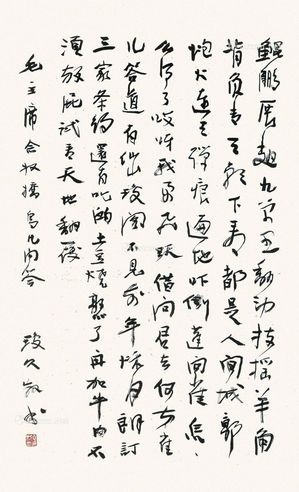 鲲鹏展翅九万里翻动扶摇羊角
背负青天朝下看都是人间城郭
炮火连天弹痕遍地吓倒蓬间雀怎
么得了哎呀我要飞跃借问君去何方雀
儿答道有仙山琼阁不见前年秋月朗订
三家条约还有吃的土豆烧熟了再加牛肉不
须放屁试看天地翻覆
毛主席念奴娇鸟儿问答